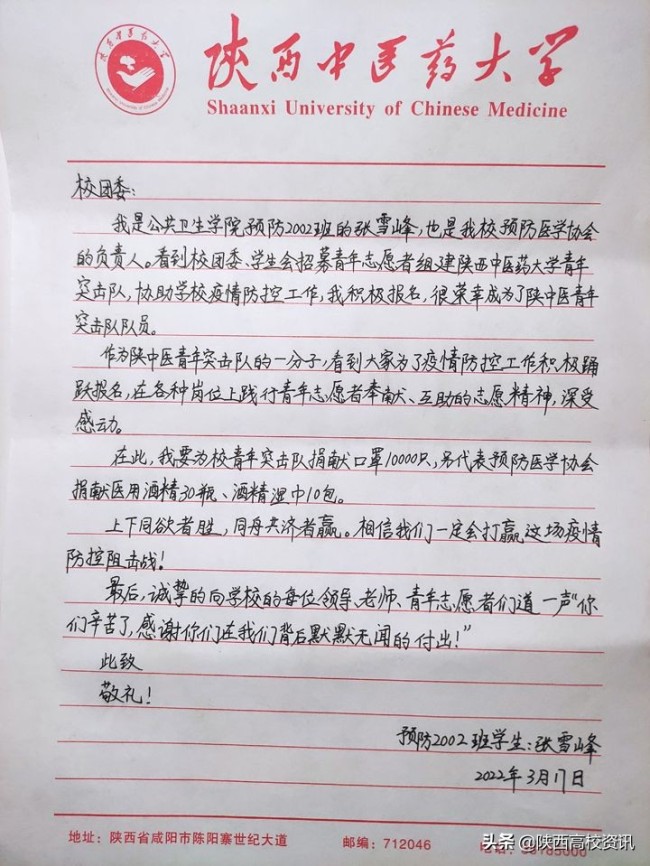 陕西中医药大学
Shaanxi University of Chinese Medicine
校团委：
我是公共卫生学院预防2002班的张雪峰，也是我校预防医学协会
的负责人。看到校团委、学生会招募青年志愿者组建陕西中医药大学青年
突击队，协助学校疫情防控工作，我积极报名，很荣幸成为了陕中医青年
突击队队员。
作为陕中医青年突击队的一分子，看到大家为了疫情防控工作积极踊
跃报名，在各种岗位上践行青年志愿者奉献、互助的志愿精神，深受
感动。
在此，我要为校青年突击队捐献口罩10000只，另代表预防医学协会
捐献医用酒精30瓶、酒精湿巾10包。
上下同欲者胜，同舟共济者赢。相信我们一定会打赢这场疫情
防控阻击战！
最后，诚挚的向学校的每位领导、老师、青年志愿者们道一声“你
们辛苦了，感谢你们在我们背后默默无闻的付出！”
此致
敬礼！
预防2002班学生：张雪峰
2022年3月17日
地址：陕西省咸阳市陈阳寨世纪大道 邮编：712046
头条 @陕西高校资讯